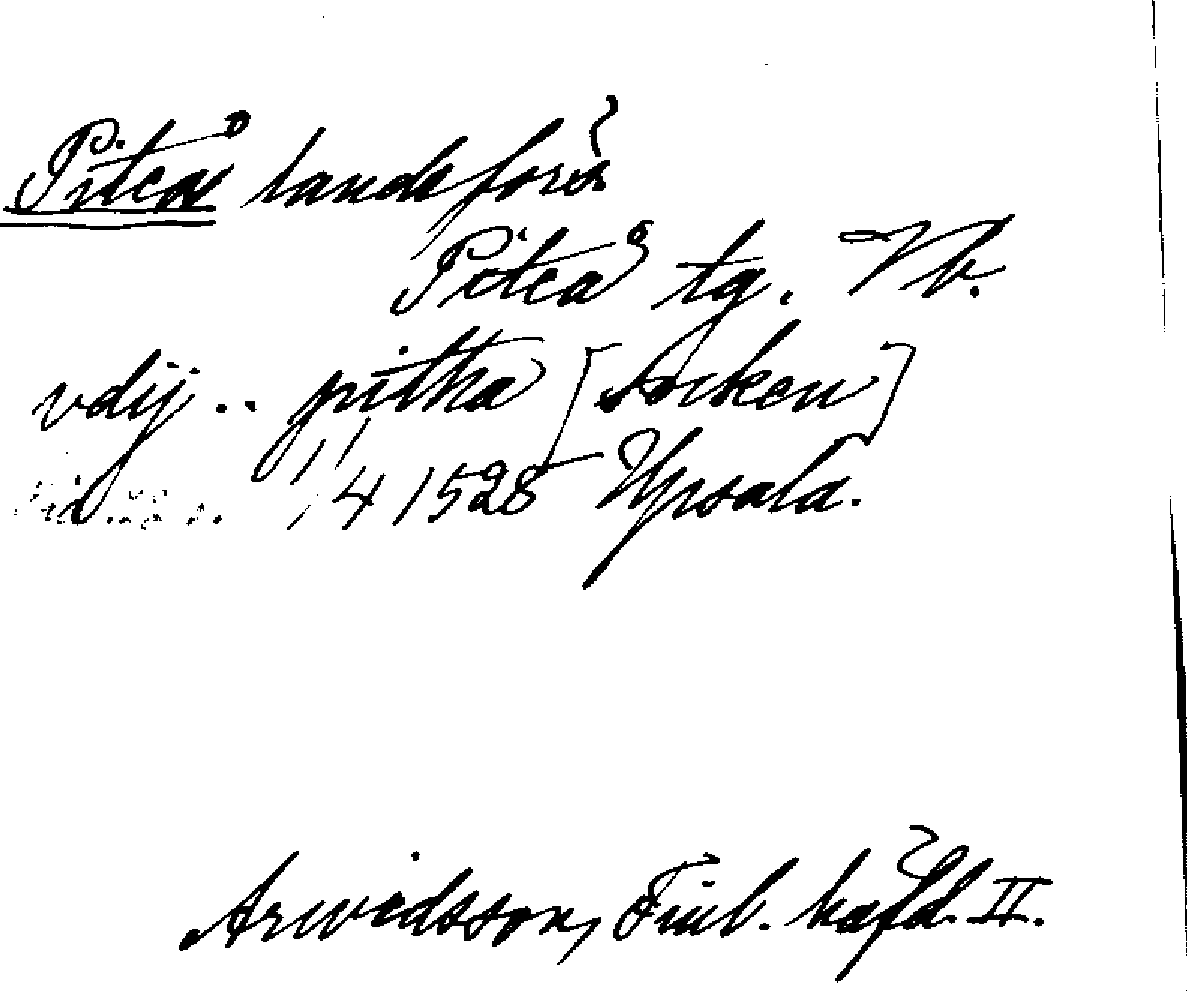 Piteå landsförs
Piteå tg. Vb.
vdij .. pitha [Socken]
11/4 1528 Upsala.
Arwidsson, Finl. häfd. II.